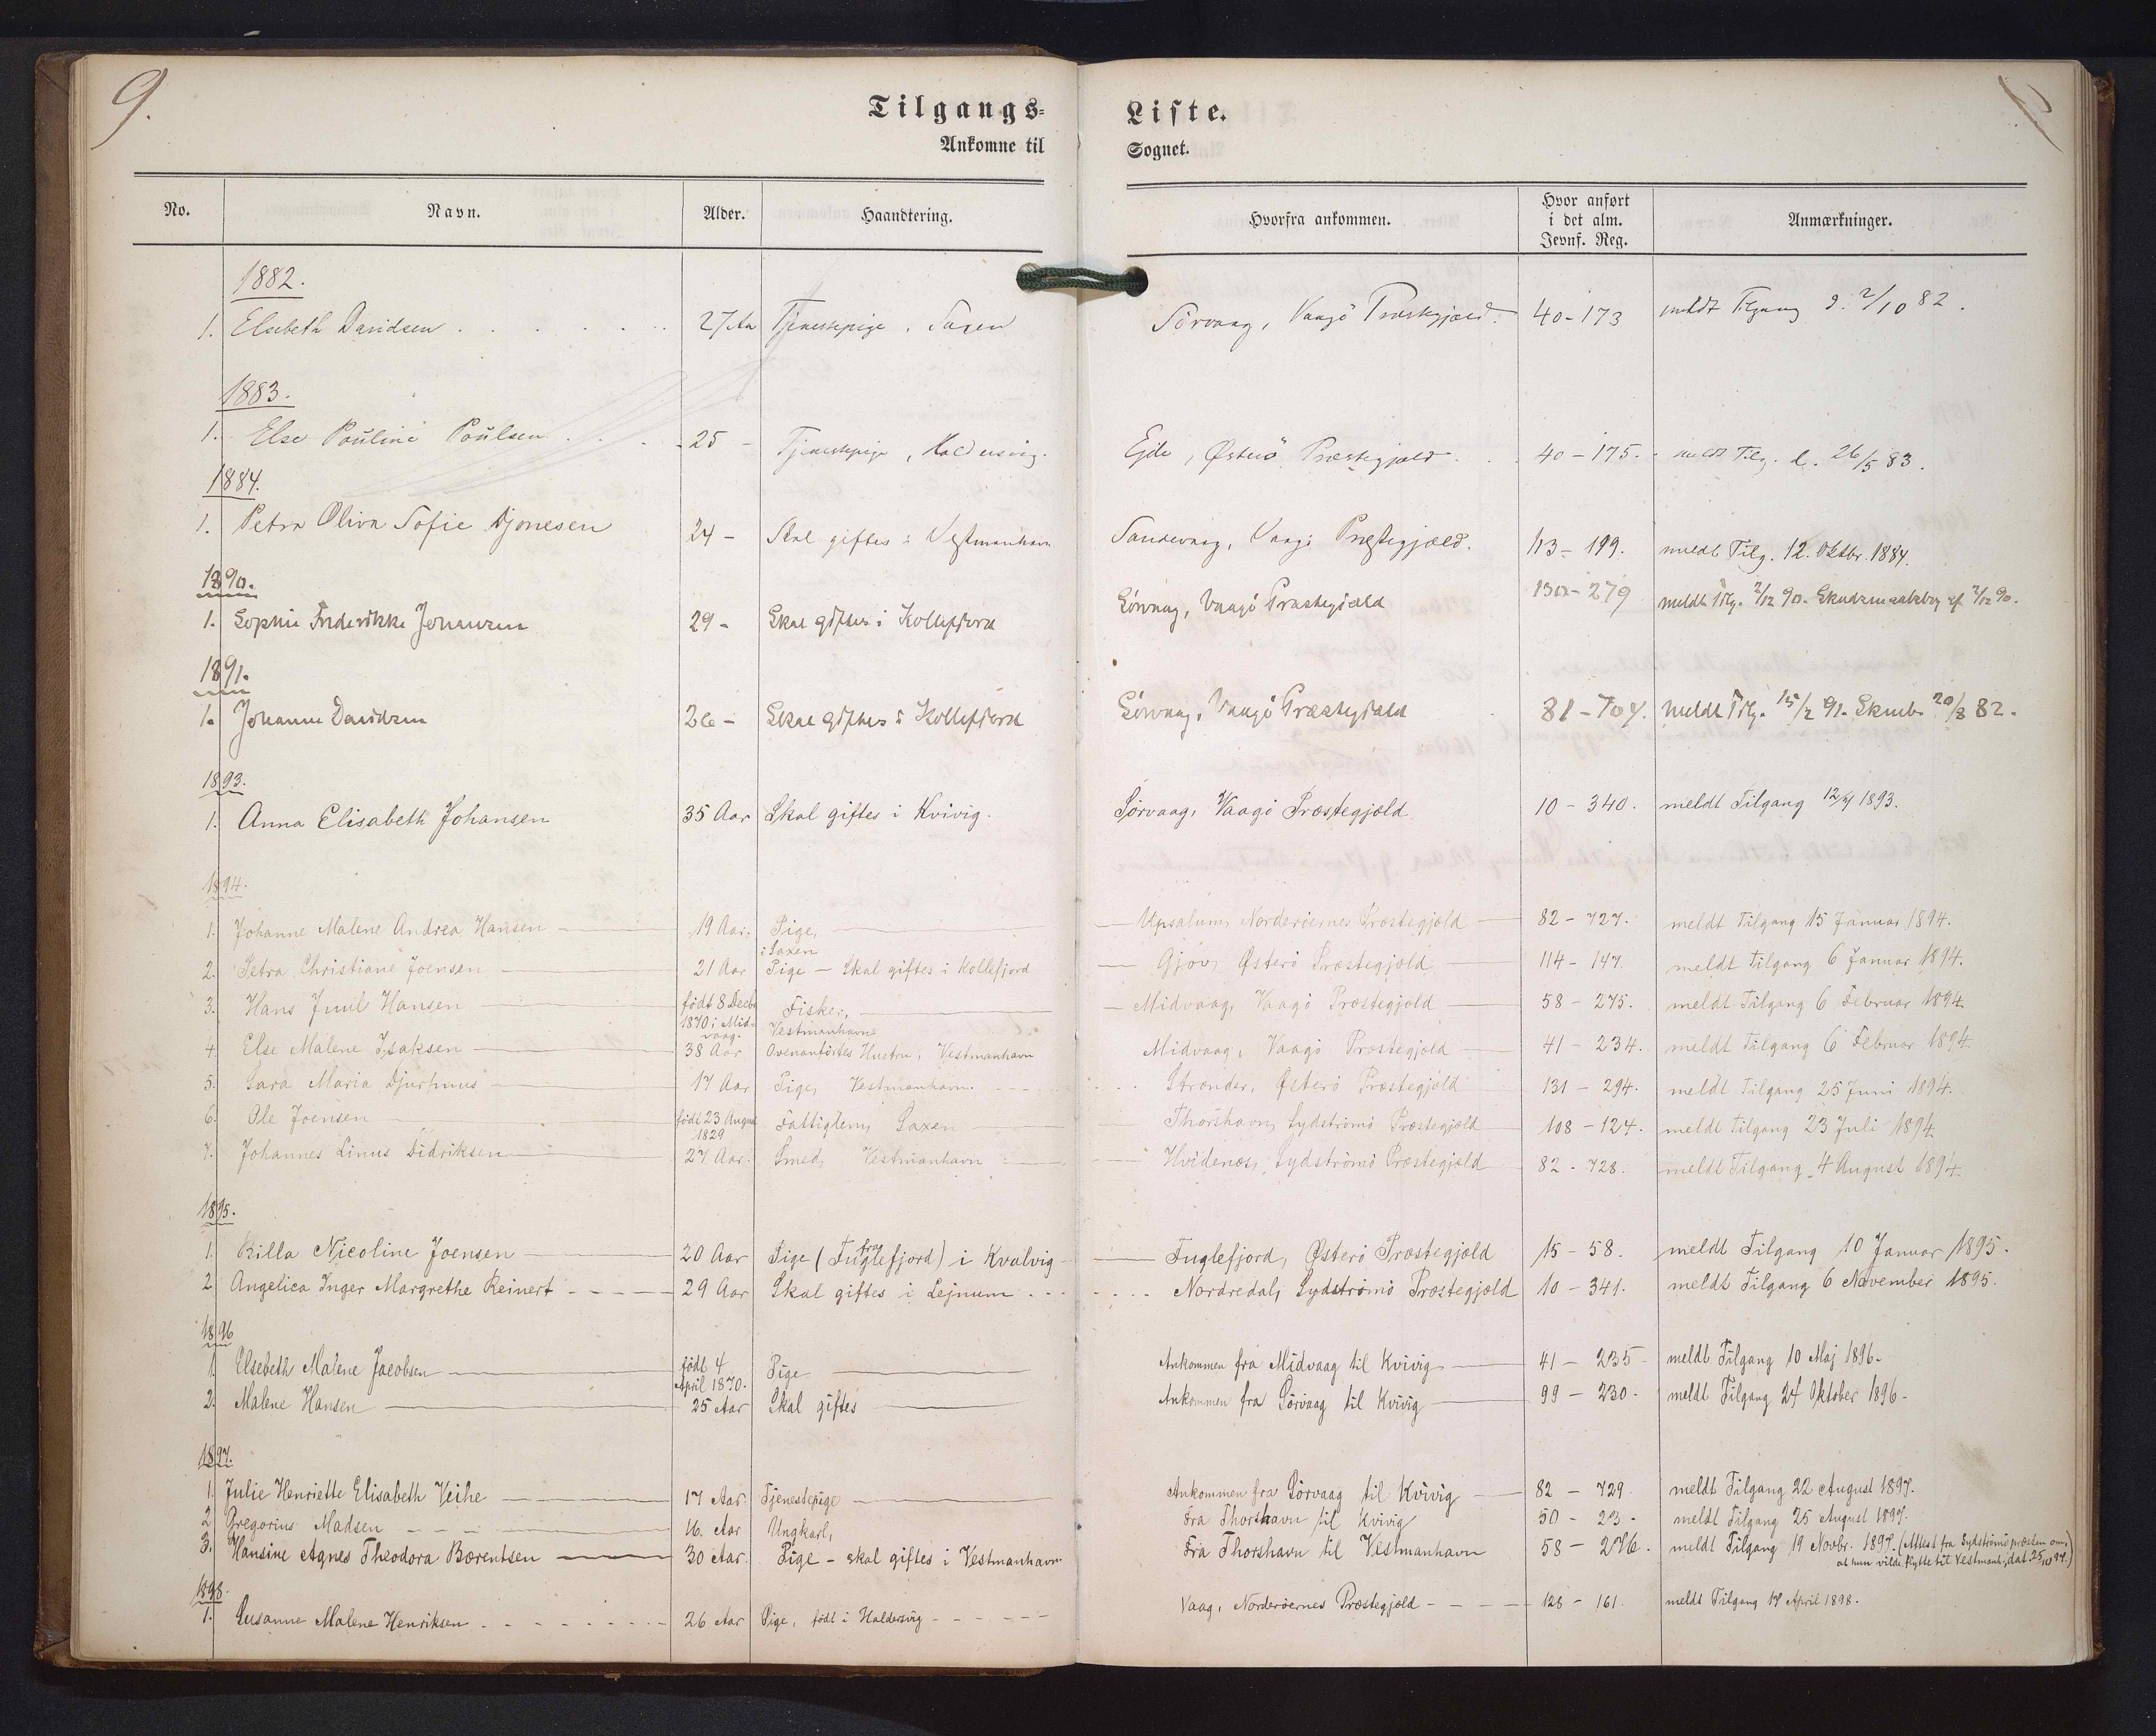 9.
Tilgangs-Liste.
Ankomne til Sognet.
No. Navn. Alder. Haandtering. Hvorfra ankommen. Hvor anført i det alm. Jevnf. Reg. Anmærkninger.
1882.
1. Elsebeth Davidsen 27 Aar Tjenestepige, Saxen Sörvaag, Vaagö Præstegjæld 40-173 meldt Tilgang d. 2/10 82.
1883.
1. Else Pouline Poulsen 25 - Tjenestepige, Haldersvig. Ejde, Østerö Præstegjæld 40-175. meldt Tilg. d. 26/5 83.
1884.
1. Petra Oliva Sofie Djonesen 24 - Skal giftes i Vestmanhavn Sandevaag, Vaagö Præstegjæld. 113-199. meldt Tilg. 12. Oktbr. 1884.
1890.
1. Sophie Frederikke Johansen 29 - Skal giftes i Kollefjord Sörvaag, Vaagö Præstegjæld 130-279 meldt Tilg. 2/12 90.
1891.
1. Johanne Davidsen 26 - Skal giftes i Kollefjord Sörvaag, Vaagö Præstegjæld 81-704. meldt Tilg. 15/2 91. 20/8 82.
1893.
1. Anna Elisabeth Johansen 35 Aar Skal giftes i Kvivig. Sörvaag, Vaagö Præstegjæld 10-340. meldt Tilgang 1893.
1894.
1. Johanne Malene Andrea Hansen 19 Aar. Pige, i Saxen Upsalum, Norderöernes Præstegjæld 82-727. meldt Tilgang 15 Januar 1894.
2. Petra Christiane Joensen 21 Aar Pige - Skal giftes i Kollefjord Gjov, Østerö Præstegjæld 114-147 meldt Tilgang 6 Januar 1894.
3. Hans Juul Hansen født 8 Decbr 1870 i Midvaag. Fisker, Vestmanhavn Midvaag, Vaagö Præstegjæld 58-275. meldt Tilgang 6 Februar 1894
4. Else Malene Isaksen 38 Aar Ovenanførtes Hustru, Vestmanhavn Midvaag, Vaagö Præstegjæld 41-234. meldt Tilgang 6 Februar 1894
5. Sara Maria Djurhuus 17 Aar Pige, Vestmanhavn. Strænder, Østerö Præstegjæld 131-294. meldt Tilgang 25 Juni 1894.
6. Ole Joensen født 23 August 1829 Fattiglem, Saxen Thorshavn, Sydströmö Præstegjæld 108-124. meldt Tilgang 23 Juli 1894
7. Johannes Linus Didriksen 27 Aar. Smed, Vestmanhavn Hvidenæs, Sydströmö Præstegjæld 82-728. meldt Tilgang 4 August 1894
1895.
1. Billa Nicoline Joensen 20 Aar Pige (fra Fuglefjord) i Kvalvig Fuglefjord, Østerö Præstegjæld 15-58. meldt Tilgang 10 Januar 1895.
2. Angelica Inger Margrethe Reinert 29 Aar Skal giftes i Lejnum Nordredal, Sydströmö Præstegjæld 10-341. meldt Tilgang 6 November 1895.
1896
1. Elsebeth Malene Jacobsen født 4 April 1870. Pige Ankommen fra Midvaag til Kvivig 41-235 meldt Tilgang 10 Maj 1896.
2. Malene Hansen 25 Aar Skal giftes Ankommen fra Sörvaag til Kvivig 99-230. meldt Tilgang 24 Oktober 1896.
1897.
1. Julie Henriette Elisabeth Veihe 17 Aar Tjenestepige Ankommen fra Sörvaag til Kvivig 82-729 meldt Tilgang 22 August 1897.
2. Gregorius Madsen 16. Aar Ungkarl, Fra Thorshavn til Kvivig 50-23. meldt Tilgang 25 August 1897.
3. Hansine Agnes Theodora Bærentsen 30 Aar. Pige - skal giftes i Vestmanhavn Fra Thorshavn til Vestmanhavn 58-276. meldt Tilgang 19 Novbr. 1897. (Attest fra Sydströmöpræsten om, at hun vilde flytte til Vestmanh., dat. 25/10 97.)
1898.
1. Susanne Malene Henriksen 26 Aar Pige, født i Haldersvig Vaag, Norderöernes Præstegjæld 128-161. meldt Tilgang 17 April 1898.